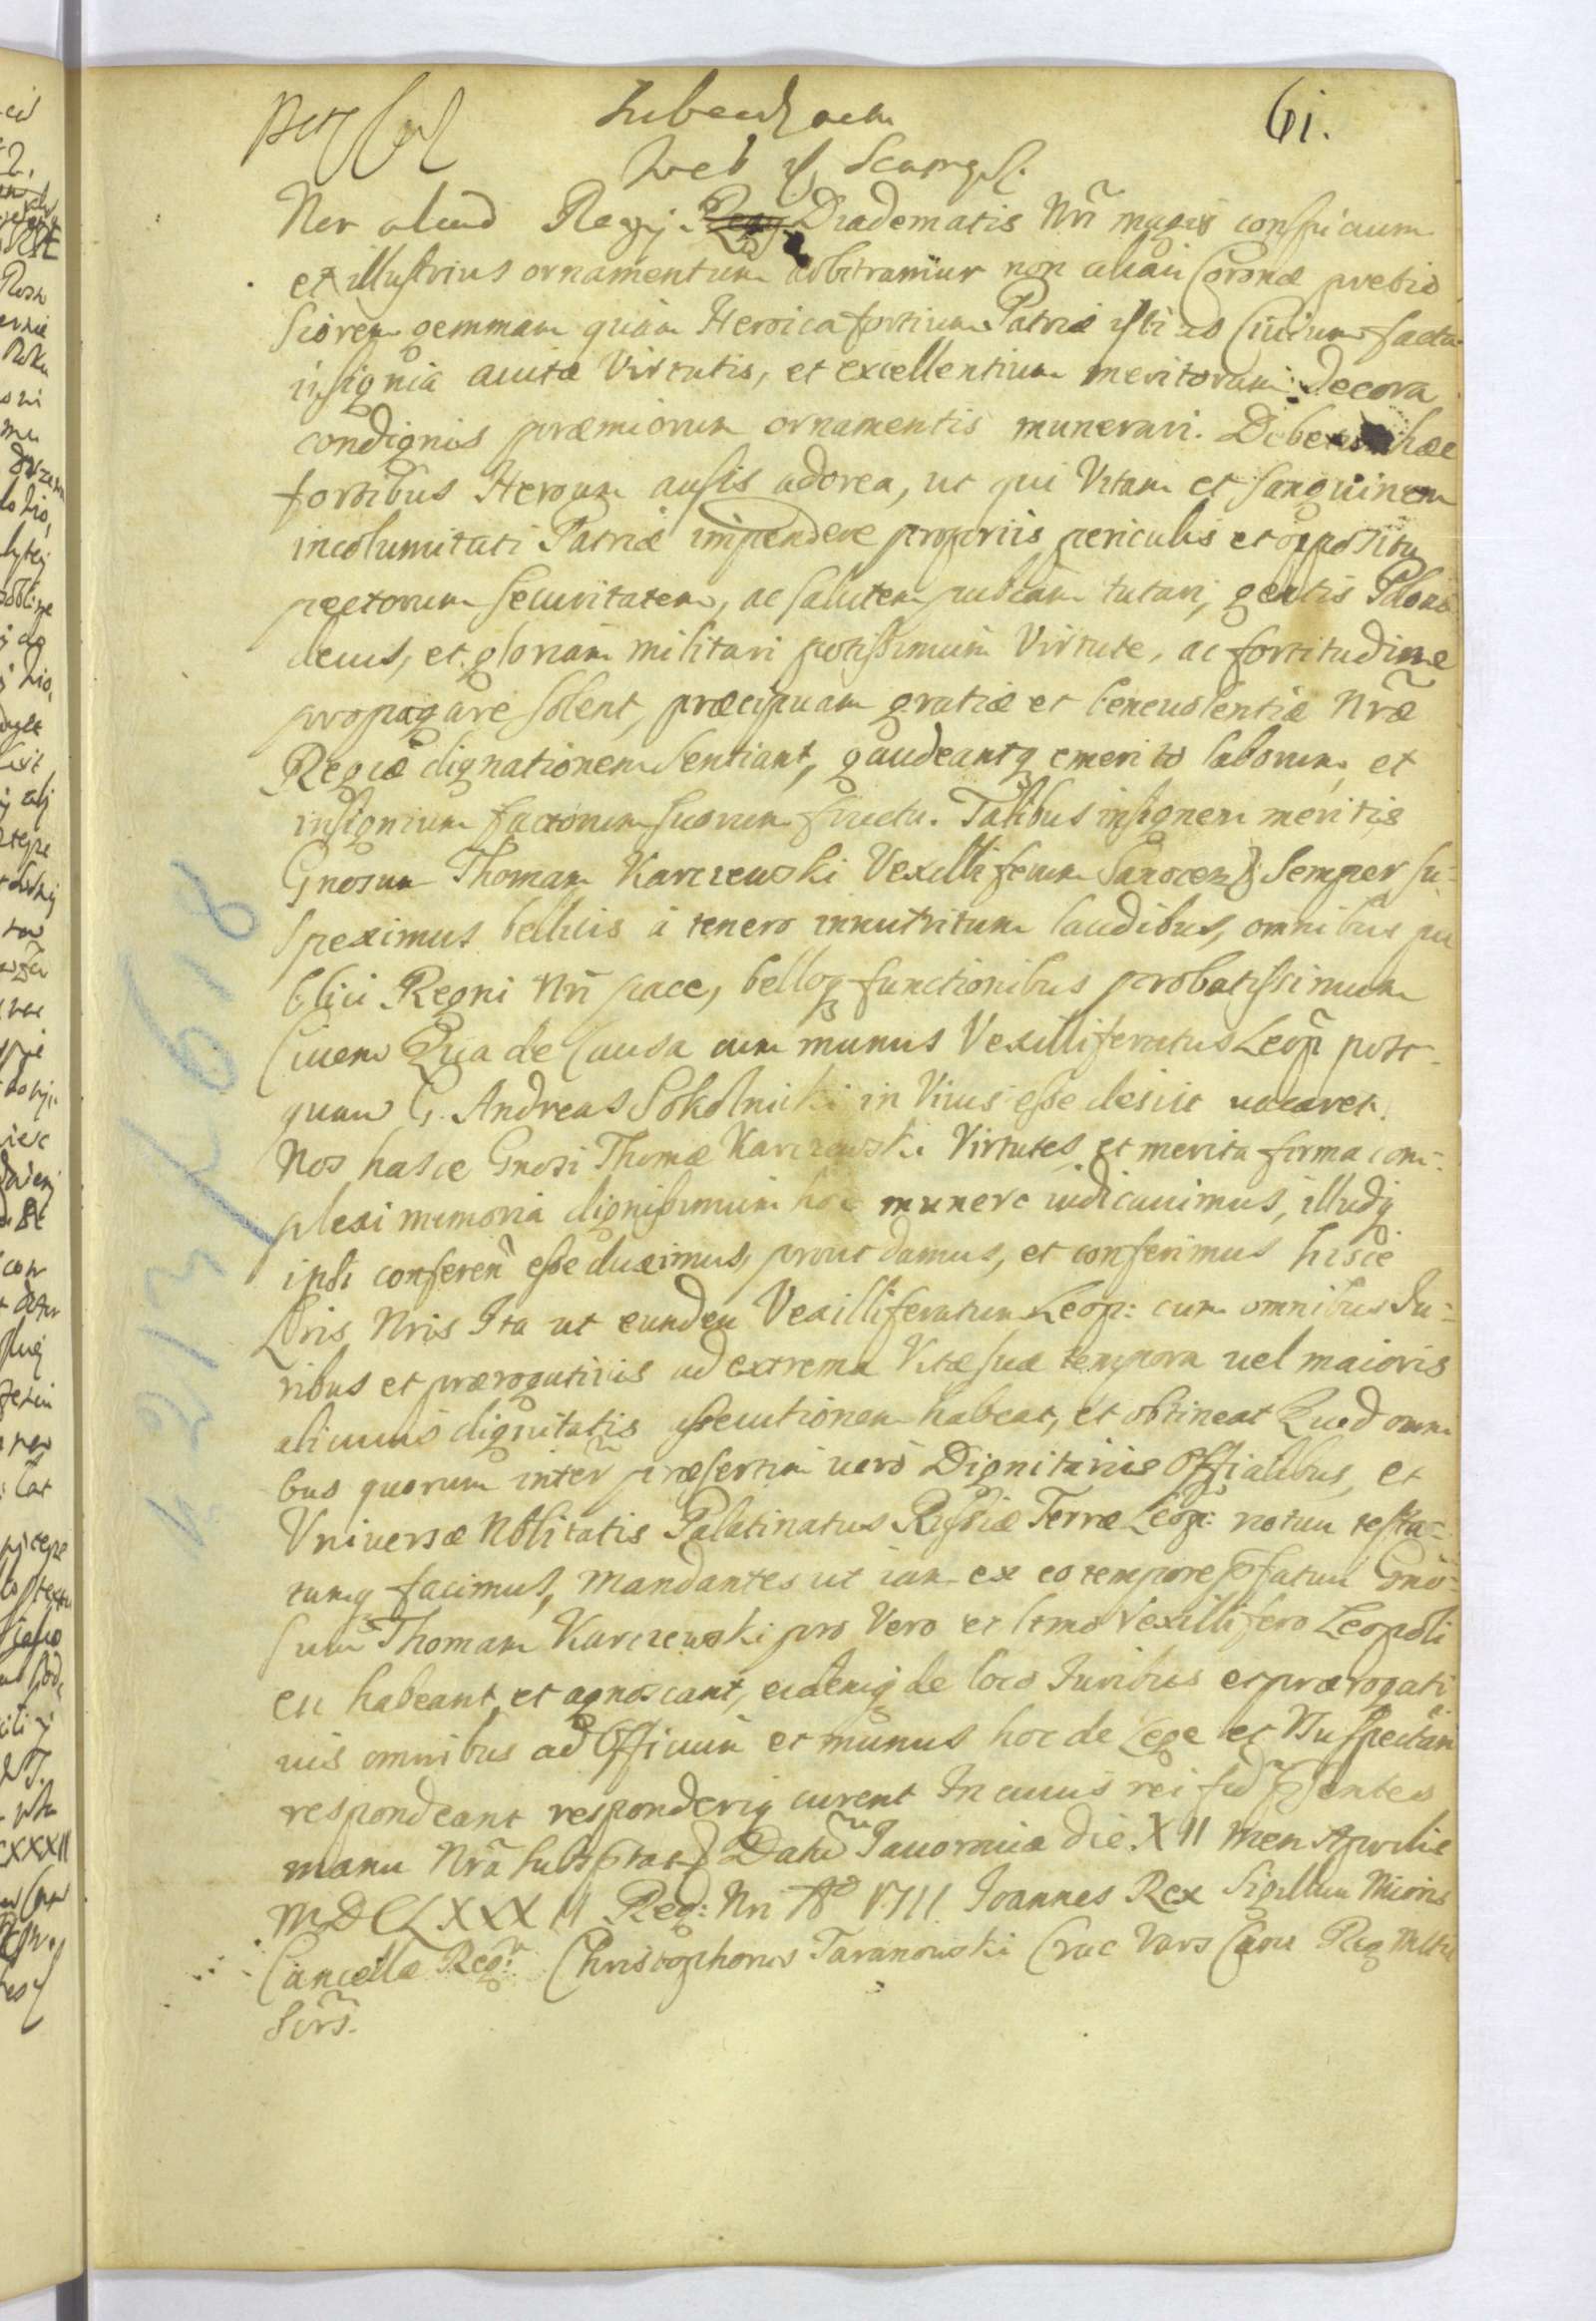 61.
Nec aliud Regij Diadematis Nri magis conspicuum
et illustrius ornamentum arbitramur non aliam Coronæ pretio
siorem gemmam quàm Heroica fortium Patriæ Civium facta
insignia avitæ Virtutis, et excellentium meritorum Decora
condignis præmiorum ornamentis munerari. hæc
fortibus Heroum ausis adorea, ut qui Vitam et sanguinem
incolumitati Patriæ impendere propriis periculis et oppositu
pectorum securitatem, ac salutem publicam tutari, gentis Polonæ
decus, et gloriam militari potissimum Virtute, ac fortitudine
propagare solent, præcipuam gratiæ et beneuolentiæ Nræ
Regiæ dignationem sentiant, gaudeantq emerito laborum, et
insignium factorum suorum fructu. Talibus insignem meritis
Gnosum Thomam Karczewski Vexilliferum Sanocen Semper su=
speximus bellicis à tenero innutritum laudibus, omnibus pu
blici Regni Nri pace, belloq functionibus probatissimum
Ciuem Qua de Causa cum munus Vexilliferatus Leop post
quam G. Andreas Sokolnicki in Viuis esse desiit uacaret.
Nos hasce Gnosi Thomæ Karczewski Virtutes et merita firma com=
plexi memoria dignissimum hoc munere iudicauimus, illudq
ipsi conferen esse duximus, prout damus, et conferimus hisce
Lris Nris Ita ut eundem Vexilliferatum Leop: cum omnibus Iu=
ribus et prærogatiuis ad extrema Vitæ suæ tempora uel maioris
alicuius dignitatis assecutionem habeat, et obtineat Quod omni
bus quorum inter præsertim uerò Dignitariis Offialibus, et
Vniversæ Nblitatis Palatinatus Russiæ Terræ Leop: notum testa=
tumq facimus, mandantes ut iam ex eo tempore pfatum Gno=
sum Thomam Karczewski pro Vero et ltmo Vexillifero Leopoli
en habeant et agnoscant, eidemq de loco Iuribus et prærogati
uis omnibus ad Officium et munus hoc de Lege et Vsu spectan
respondeant responderiq curent In cuius rei fid psentes
manu Nra subsptas Datum Iauorouiæ die XII Men Aprilis
MDCLXXXII Reg: Nri Ao VIII Joannes Rex Sigillum Minoris
Cancellæ Reg: Christophorus Taranowski Crac Vars Canu Reg Mttis
Scrs.